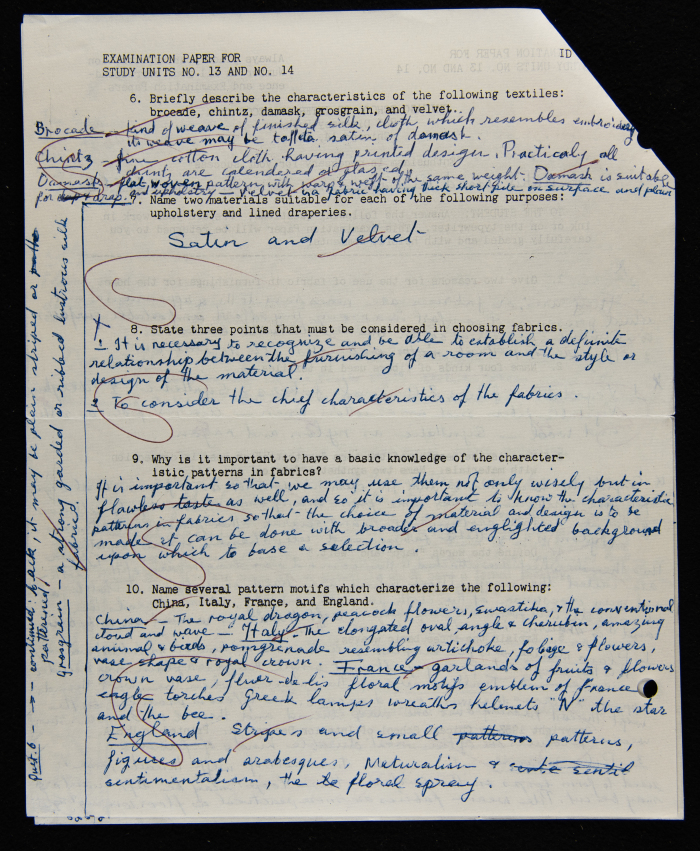 EXAMINATION PAPER FOR
STUDY UNITS NO. 13 AND NO. 14
ID
6. Briefly describe the characteristics of the following textiles:
brocade, chintz, damask, grosgrain, and velvet.
Brocade - kind of weave of finished silk, cloth which resembles embroidery
its weave may be taffeta satin of damask.
Chintz - fine cotton cloth having printed design. Practicaly all
chints are calendered or glazed
Damask - flat woven pattern with warp & weft of the same weight. Damask is suitable
for drap. & upholstry - Velvet is a fabric having thick short pile on surface and plain
7. Name two materials suitable for each of the following purposes:
upholstery and lined draperies.
Satin and Velvet
8. State three points that must be considered in choosing fabrics.
X
1 It is necessary to recognize and be able to establish a definite
relationship between the furnishing of a room and the style or
design of the material.
2 To consider the chief characteristics of the fabrics.
9. Why is it important to have a basic knowledge of the character-
istic patterns in fabrics?
It is important so that we may use them not only wisely but in
flawless taste as well, and so it is important to know the characteristic
patterns in fabrics so that the choice of material and design is to be
made it can be done with broader and englighted background
upon which to base a selection.
10. Name several pattern motifs which characterize the following:
China, Italy, France, and England.
China - The royal dragon, peacock flowers, swastika, & the conventional
cloud and wave - Italy - The elongated oval angle & cherubim, amazing
animal & birds, pomgrenade resembling artichoke, foliage & flowers,
vase shape & royal crown. France garlands of fruits & flowers
crown vase, fluer-de-lis floral motifs emblem of france
eagle torches Greek lamps wreaths helmets "N" the star
and the bee.
England Stripes and small patterns patterns,
figures and arabesques, Naturalism &
sentimentalism, the te floral spray.
Part. 6 - continued: back, it may be plain striped or
patterned,
Grosgrain - a strong corded or ribbed lustrous silk
fabric